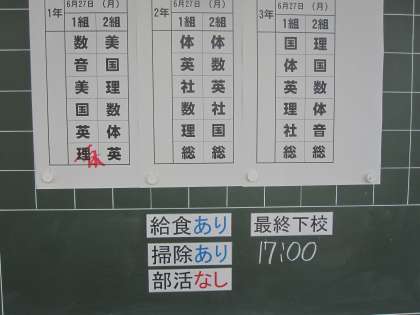 1年 6月27日 （月）
1組 2組
数 美
音 国
美 理
国 数
英 体
理 体 英
2年 6月27日 （月）
1組 2組
体 体
英 数
社 英
数 社
理 国
総 総
3年 6月27日 （月）
1組 2組
国 理
体 国
英 数
理 体
社 音
総 総
給食あり
掃除あり
部活なし
最終下校
17:00